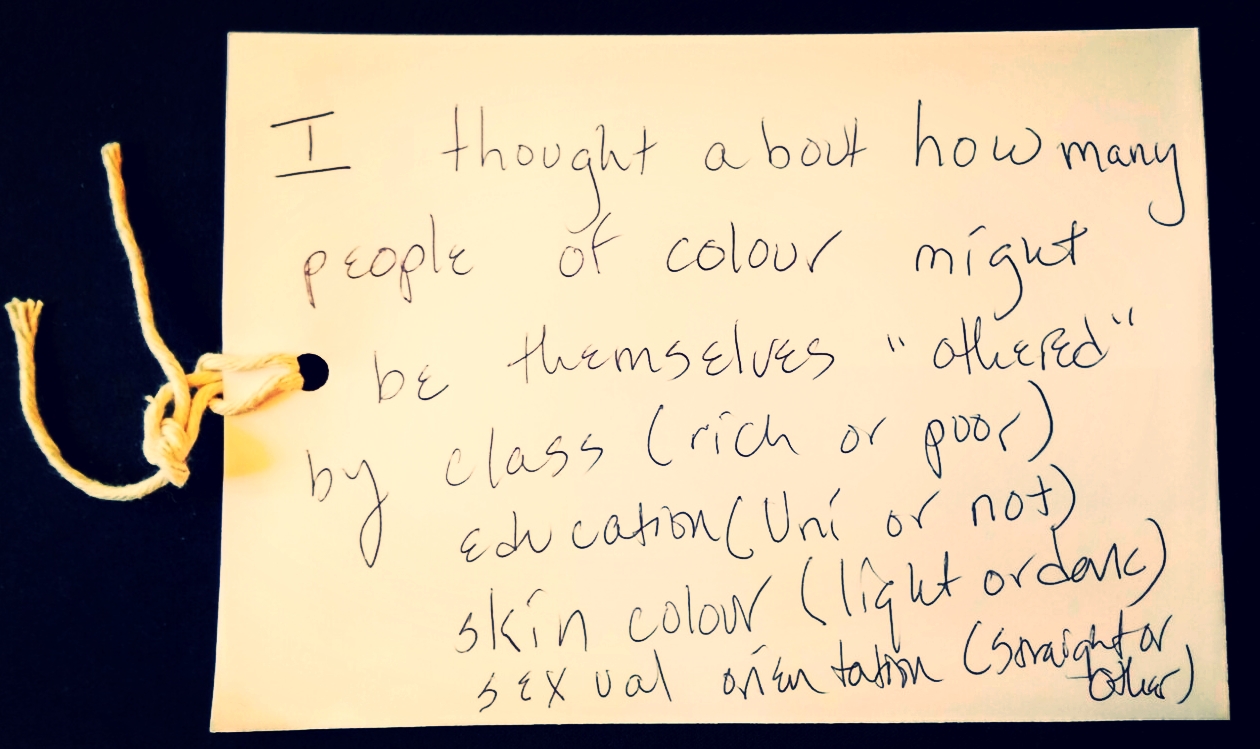 I thought about how many
people of colour might
be themselves "othered"
by class (rich or poor)
education (Uni or not)
skin colour (light or dark)
sexual orientation (straight or
other)